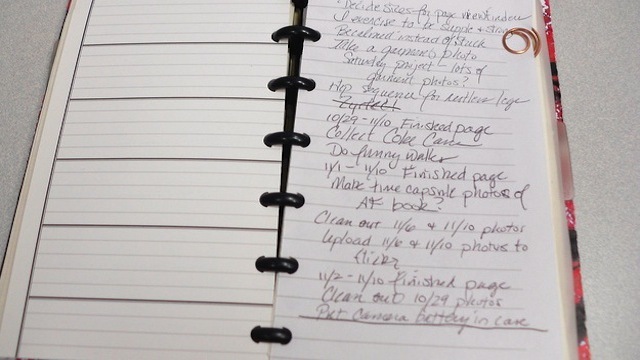 Decide sizes for page viewfinder
I exercise to be supple & strong
Becalmed instead of stuck
Take a photo
Saturday project – lots of
photos?
Hop sequence for restless legs
10/29 – 11/10 Finished page
Collect Coke Cans
Do funny walks
11/1 – 11/10 Finished page
Make time capsule photos of
book?
Clean out 11/6 & 11/10 photos
Upload 11/6 & 11/10 photos to
flickr
11/2 – 11/10 Finished page
Clean out 10/29 photos
Put camera battery in case